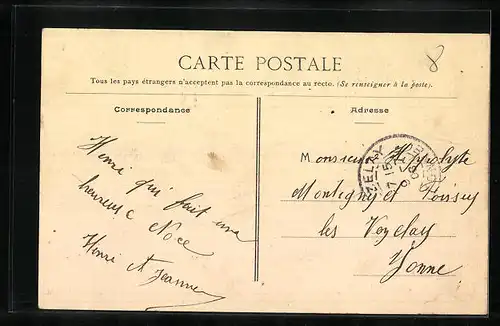 8
CARTE POSTALE
Tous les pays étrangers n'acceptent pas la correspondance au recto. (Se renseigner à la poste).
Correspondance
Adresse
Henri qui fait une
heureuse Noce
Henri et Jeanne
Monsieur Hippolyte
Montigny
les
Yonne